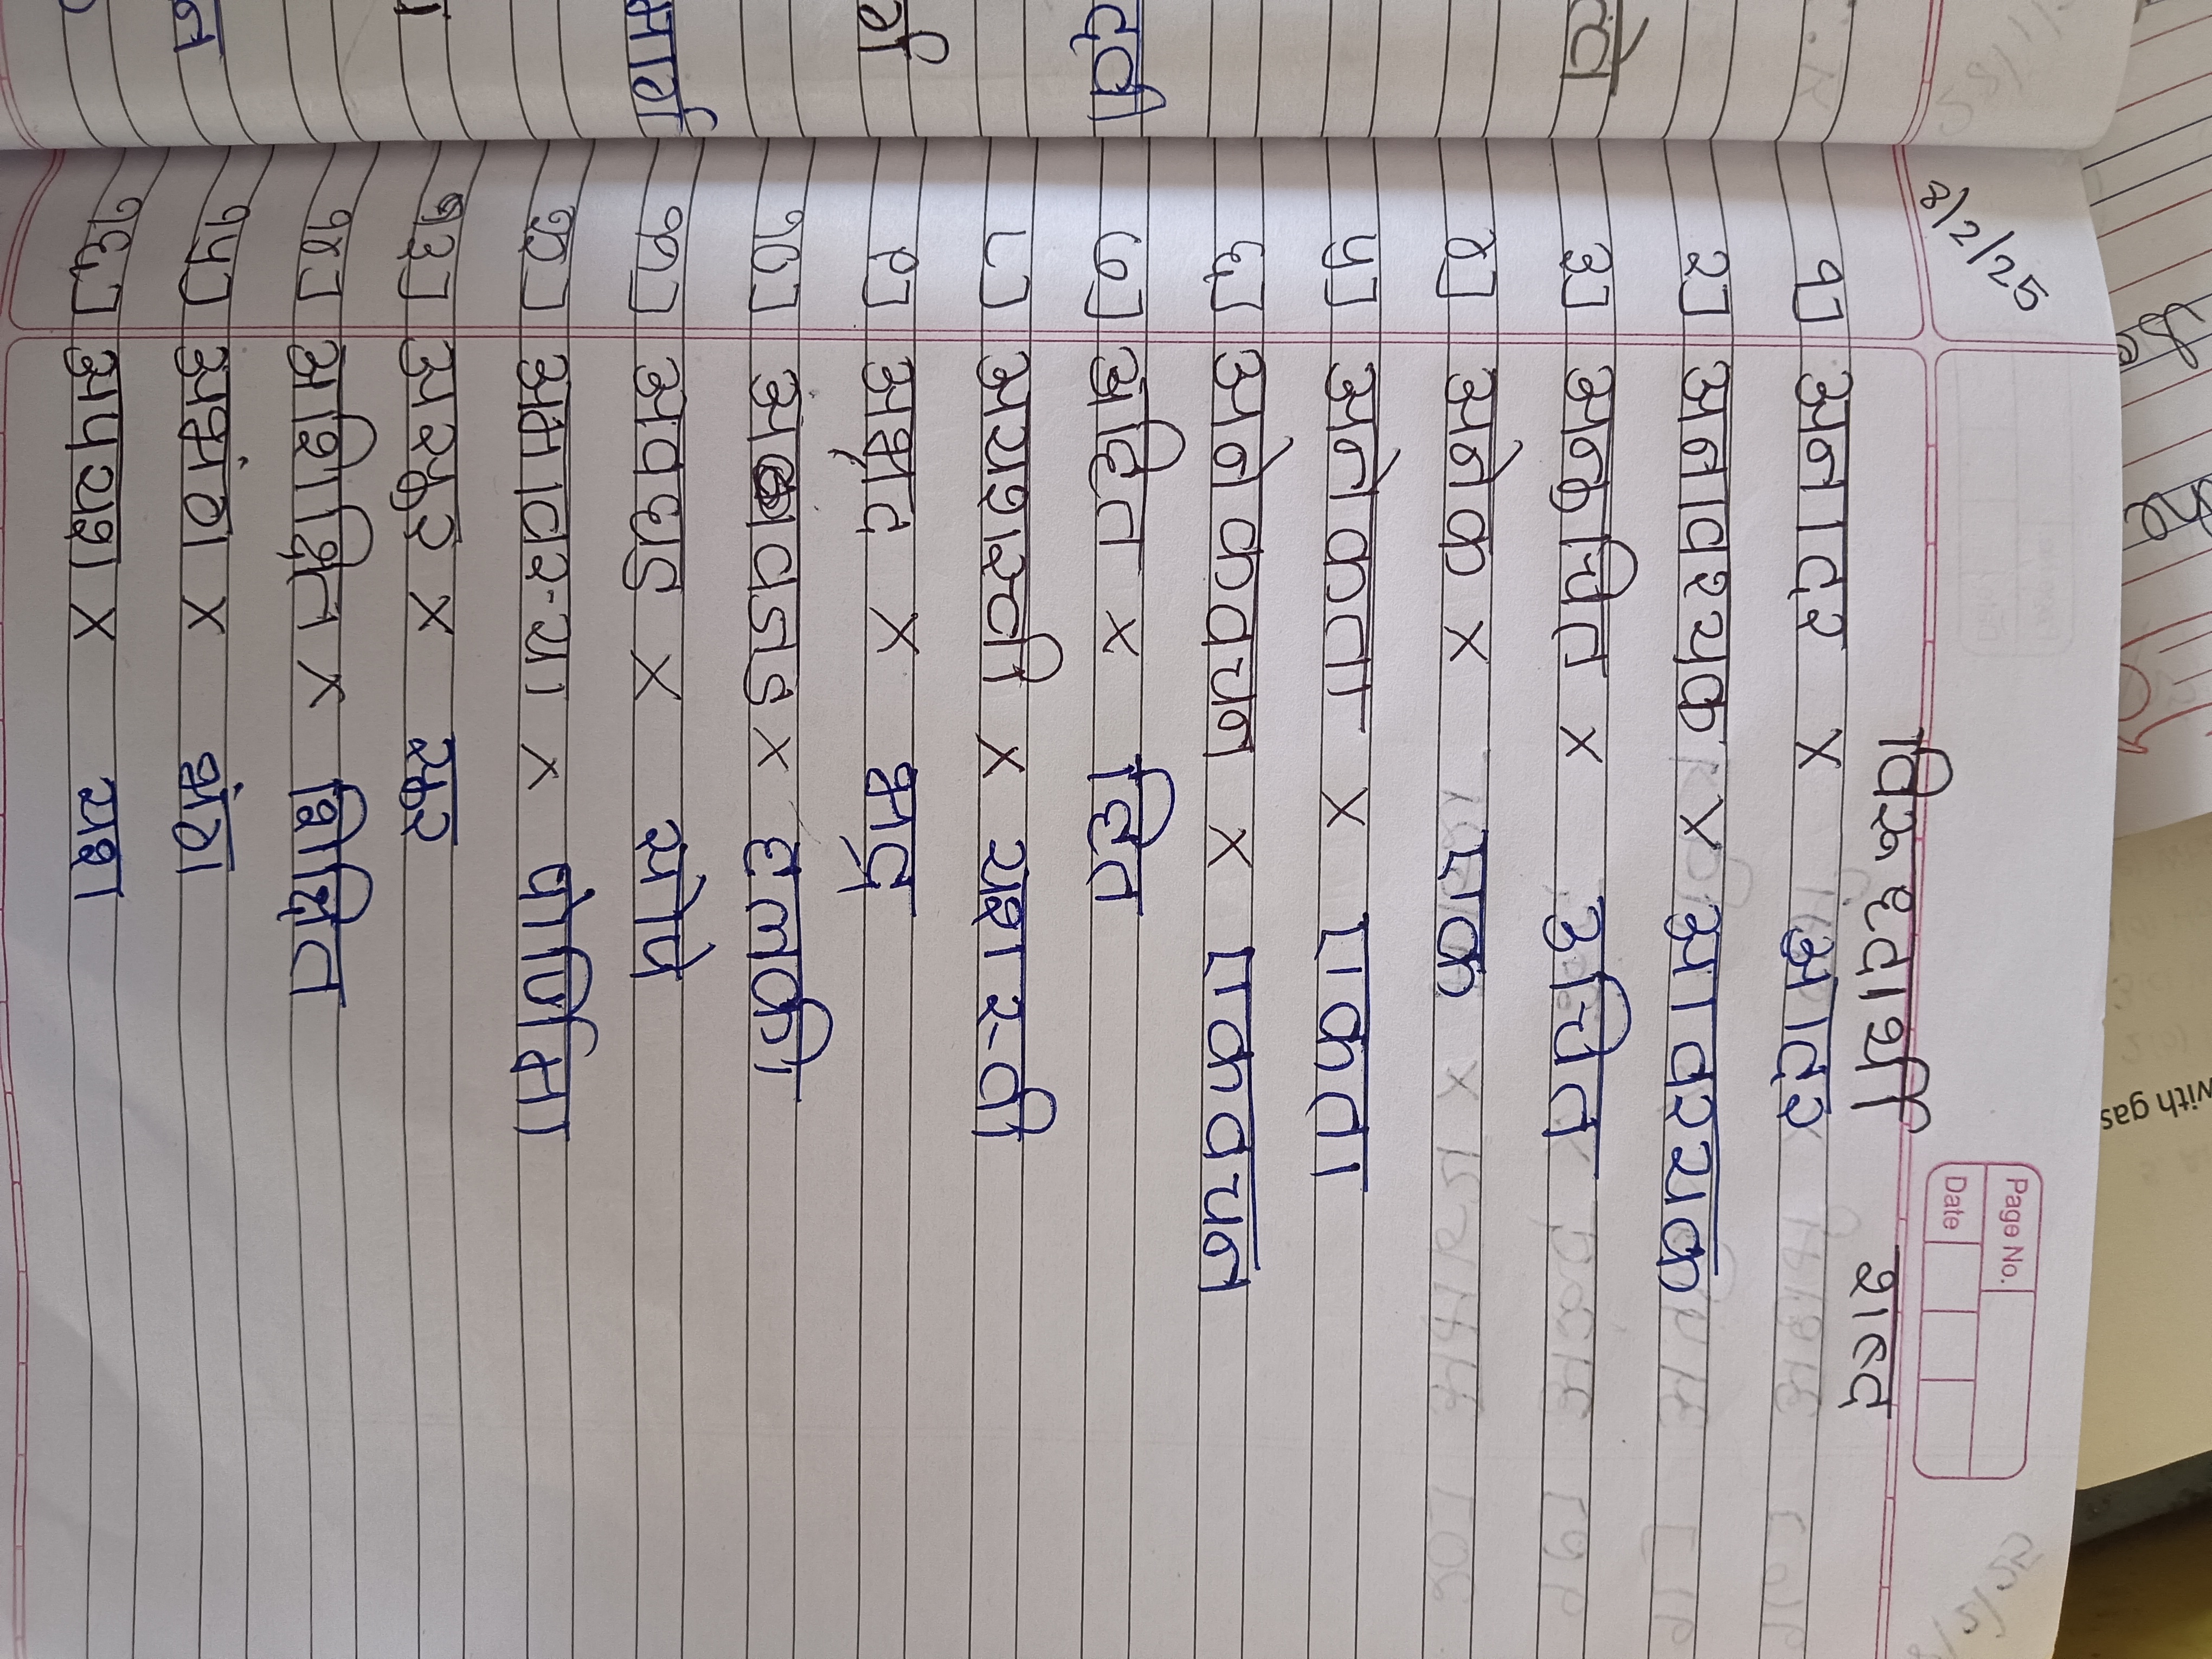 8/2/25
Page No.
Date
विरूध्दार्थी शब्द
१] अनादर x आदर
२] अनावश्यक x आवश्यक
३] अनुचित x उचित
४] अनेक x एक
५] अनेकता x एकता
६] अनेकवचन x एकवचन
७] अहित x हित
८] अयशस्वी x यशस्वी
९] अभद्र x भद्र
१०] अवजड x हलकी
११] अवघड x सोपे
१२] अमावस्या x पोर्णिमा
१३] असुर x सुर
१४] अशिक्षित x शिक्षित
१५] अभंग x भंग
१६] अपयश x यश
with gas